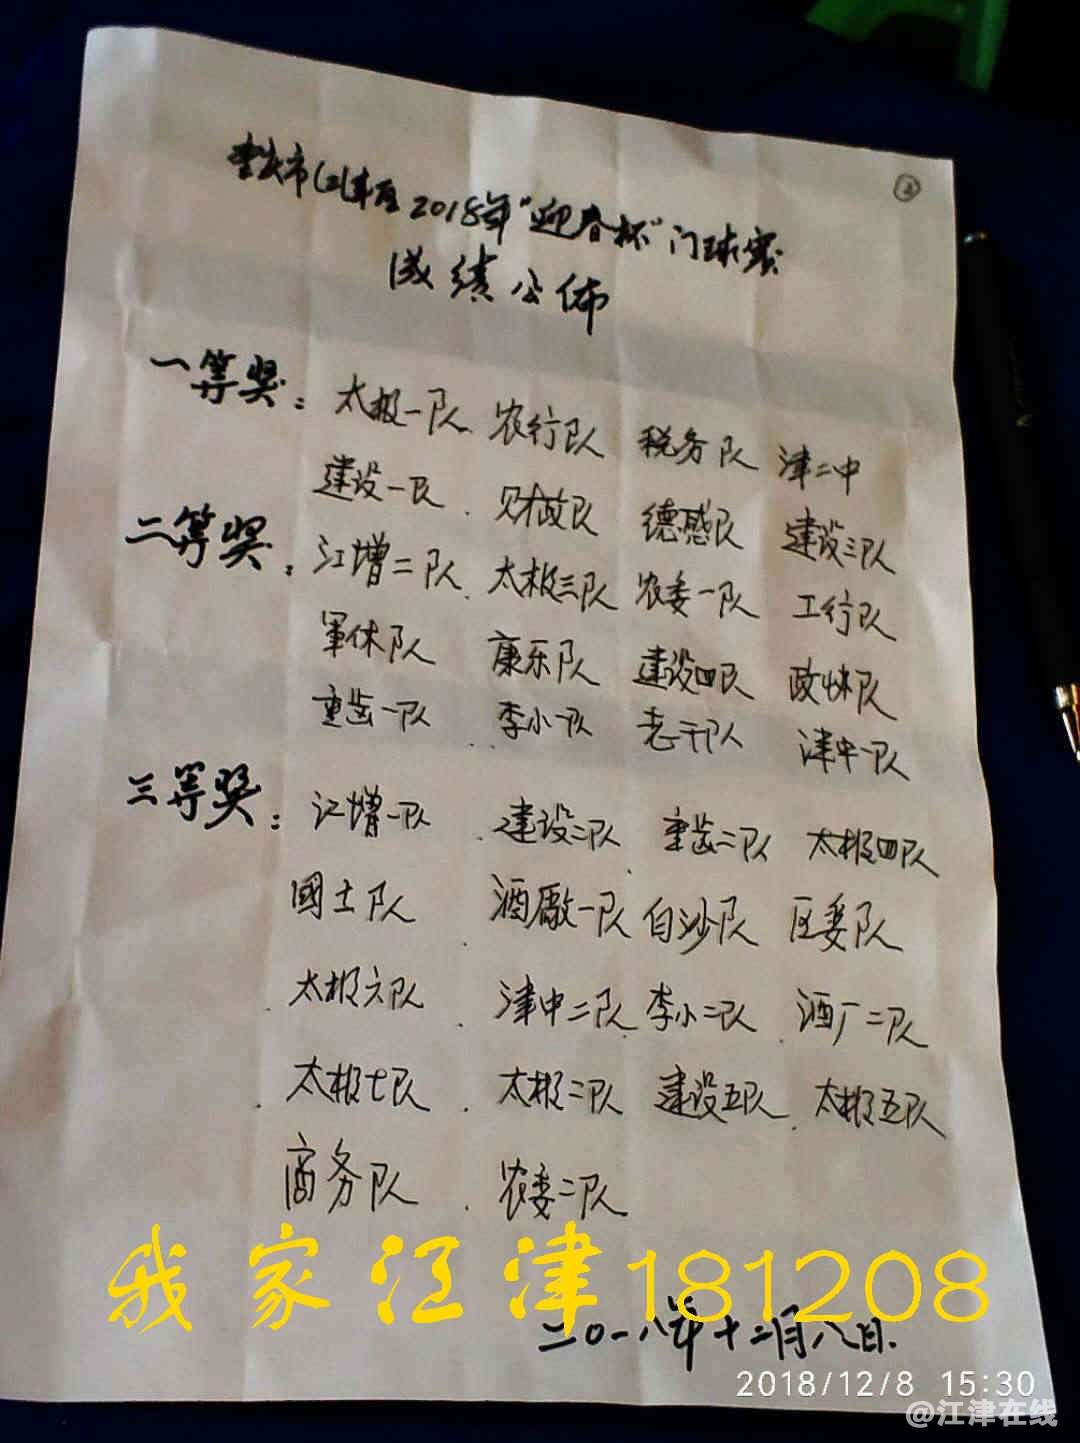 ②
重庆市江津区2018年"迎春杯"门球赛
成绩公佈
一等奖：太极一队 农行队 税务队 津二中
建设一队 财政队 德感队 建设三队
二等奖：江增二队 太极三队 农委一队 工行队
軍休队 康乐队 建设四队 政快队
重齿一队 李小一队 老干队 津中一队
三等奖：江增一队 建设二队 重齿二队 太极四队
國土队 酒廠一队 白沙队 区委队
太极六队 津中二队 李小二队 酒厂二队
太极七队 太极二队 建设五队 太极五队
商务队 农委二队
我家江津181208
二〇一八年十二月八日.
2018/12/8 15:30
@江津在线